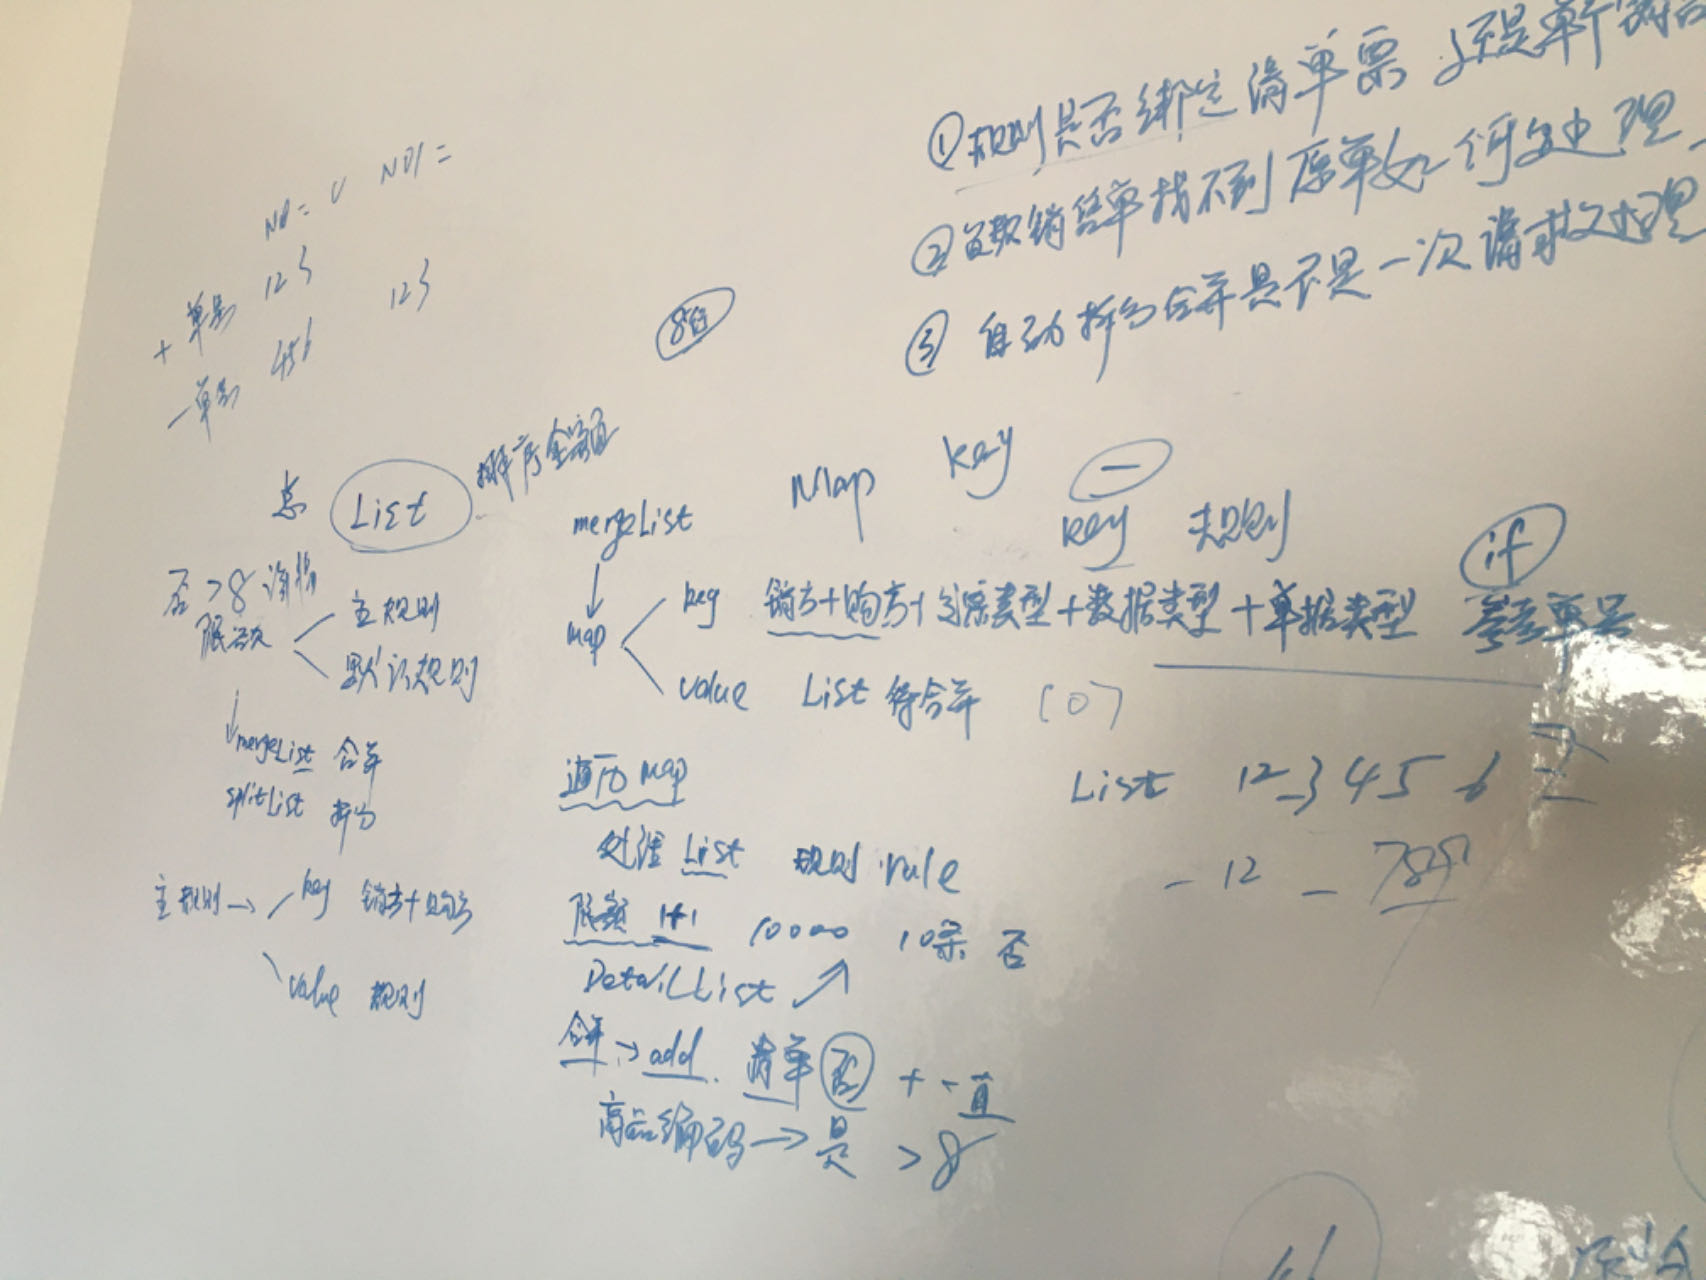 ①规则是否绑定清单票 还是新
②负数销售单找不到原单如何处理
③ 自动拆分合并是不是一次请求处理
NO1=
+ 单号 123 123
- 单号 456
总 List 排序金额
否 >8
主规则
默认规则
mergeList 合并
splitList 拆分
主规则→ key 销方+购方
value 规则
mergeList Map key
key 规则 if
map key 销方+购方+ 类型+数据类型+单据类型 单号
value List 待合并 (0)
遍历map
处理List 规则 rule
限额 1+1 10000 10条 否
DetailList
合并→add 清单 否 + - 直
商品编码→是 >8
List 12 3 4 5 6
- 12 - 789